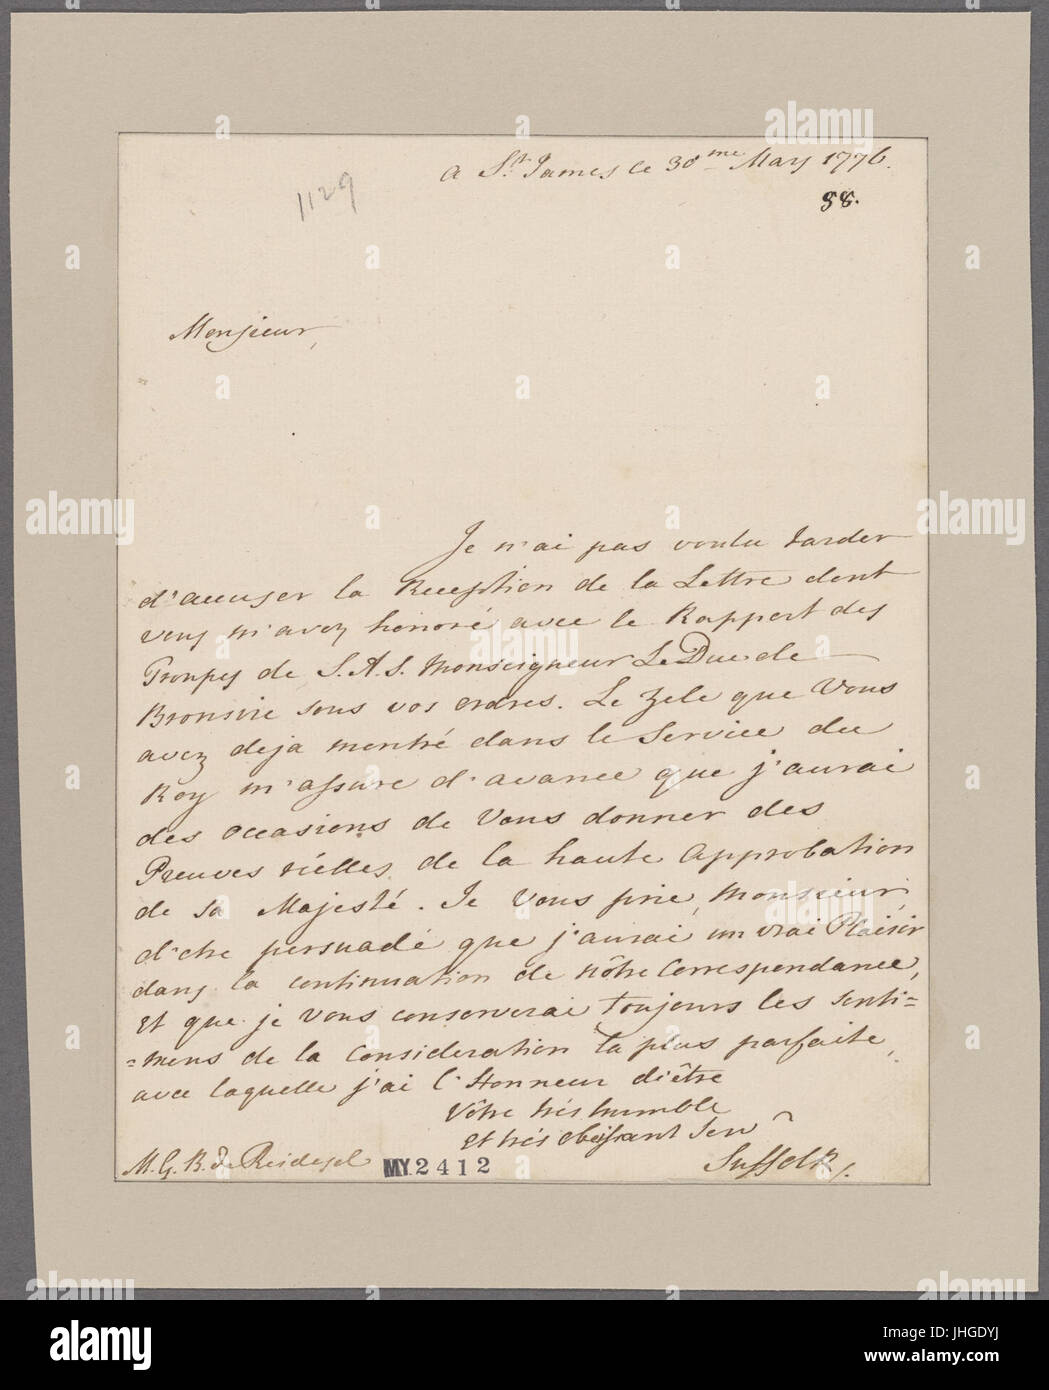 a St. James le 30me May 1776.
1129
58.
Monsieur,
Je n'ai pas voulu tarder
d'accuser la Reception de la Lettre dont
vous m'avez honoré avec le Rapport des
Troupes de S. A. S. Monseigneur Le Duc de
Bronsvic sous vos ordres. Le Zele que Vous
avez deja montré dans le Service du
Roy m'assure d'avance que j'aurai
des occasions de Vous donner des
Preuves réelles de la haute Approbation
de sa Majesté. Je Vous prie, Monsieur,
d'etre persuadé que j'aurai un vrai Plaisir
dans la continuation de nôtre Correspondance,
et que je Vous conserverai toujours les senti=
=mens de la Consideration la plus parfaite,
avec laquelle j'ai l'Honneur d'être
Vôtre trés humble
et trés obeissant Serv
M. G. B. de Reidesel
MY.2412
Suffolk
alamy
alamy stock photo
JHGDYJ
www.alamy.com